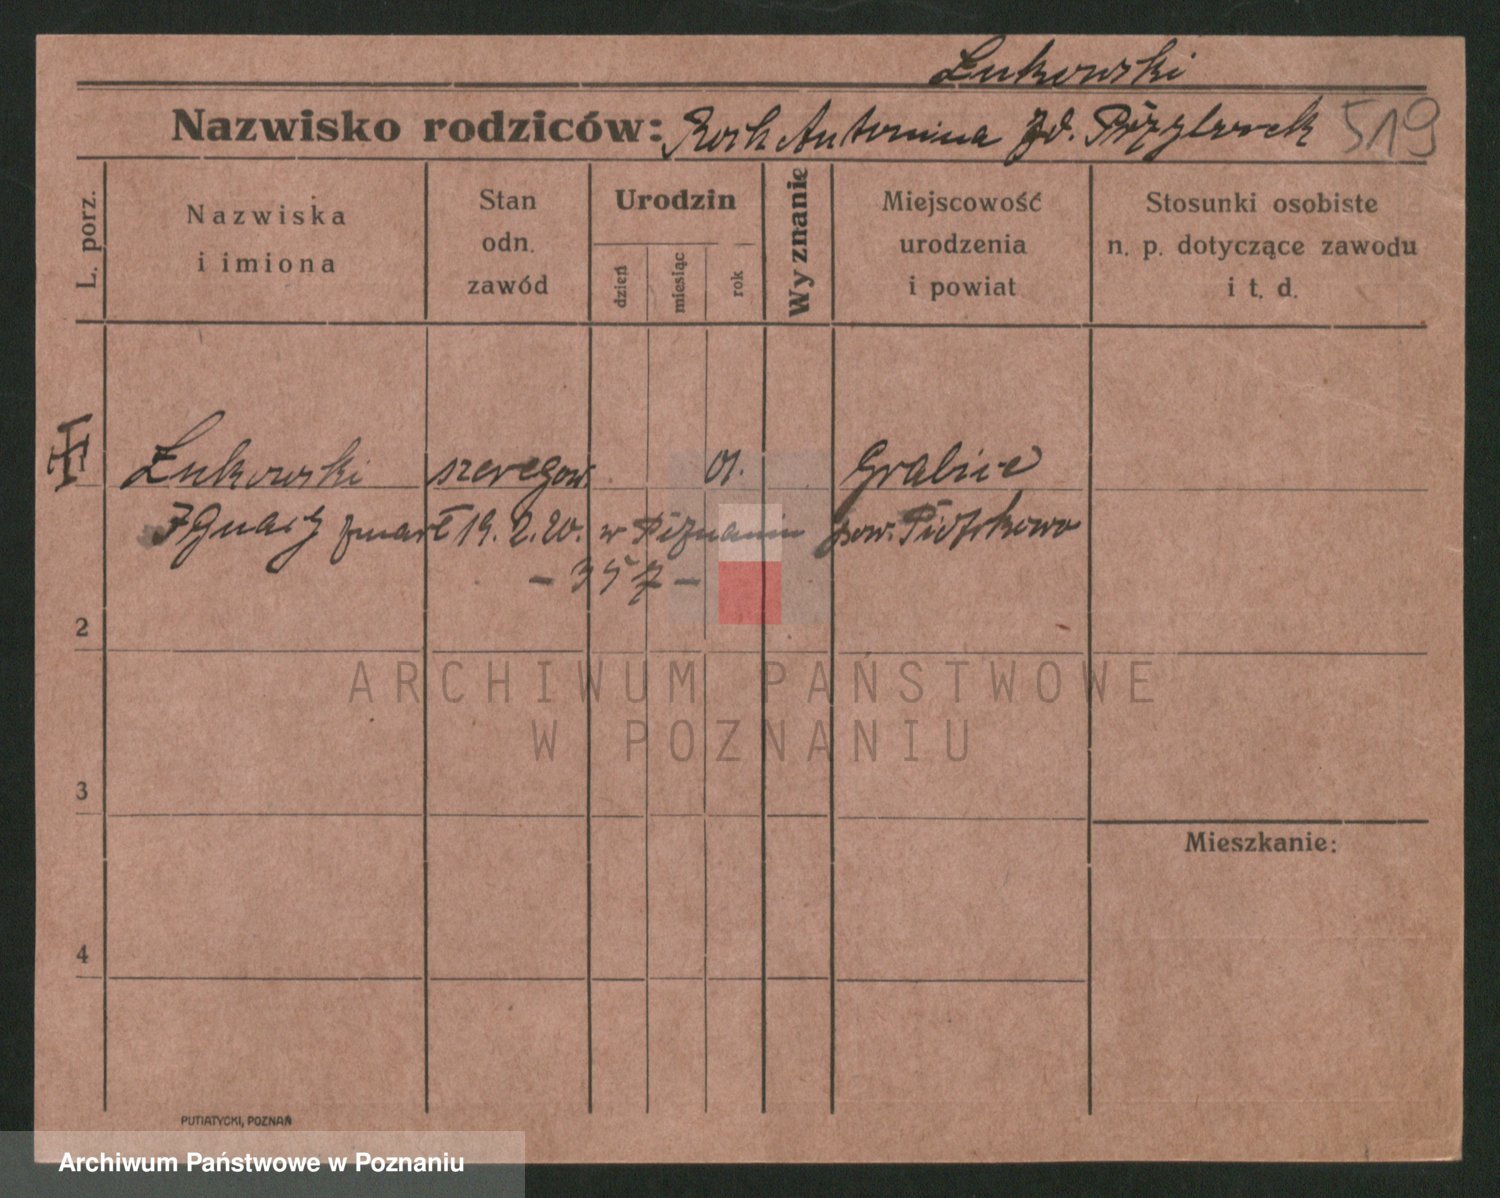 Łukowski
Nazwisko rodziców: Roch Antonina zd. Przyborek 519
L. porz.
Nazwiska
i imiona
Stan
odn.
zawód
Urodzin
dzień
miesiąc
rok
Wyznanie
Miejscowość
urodzenia
i powiat
Stosunki osobiste
n. p. dotyczące zawodu
i t. d.
Łukowski szeregow. 01. Grabice
Ignacy zmarł 19.2.20. w Poznaniu pow. Piotrkowo
- 357 -
2
ARCHIWUM PAŃSTWOWE
W POZNANIU
3
Mieszkanie:
4
PUTIATYCKI, POZNAŃ
Archiwum Państwowe w Poznaniu